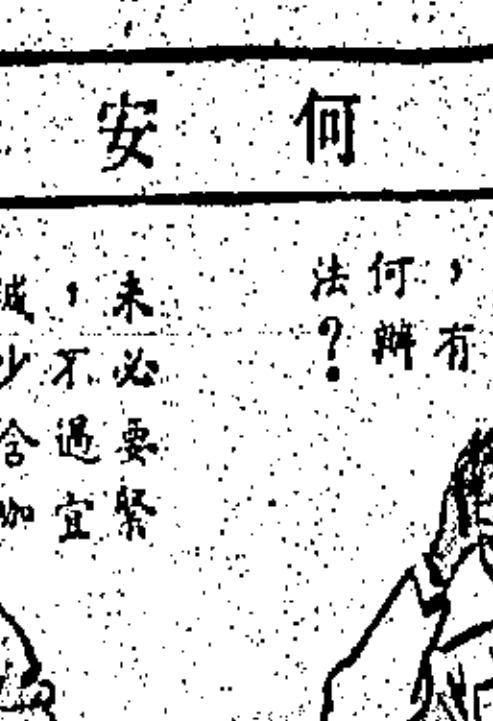 何安
，有
何辦
法？
未必要緊
，不過宜
減少含咖